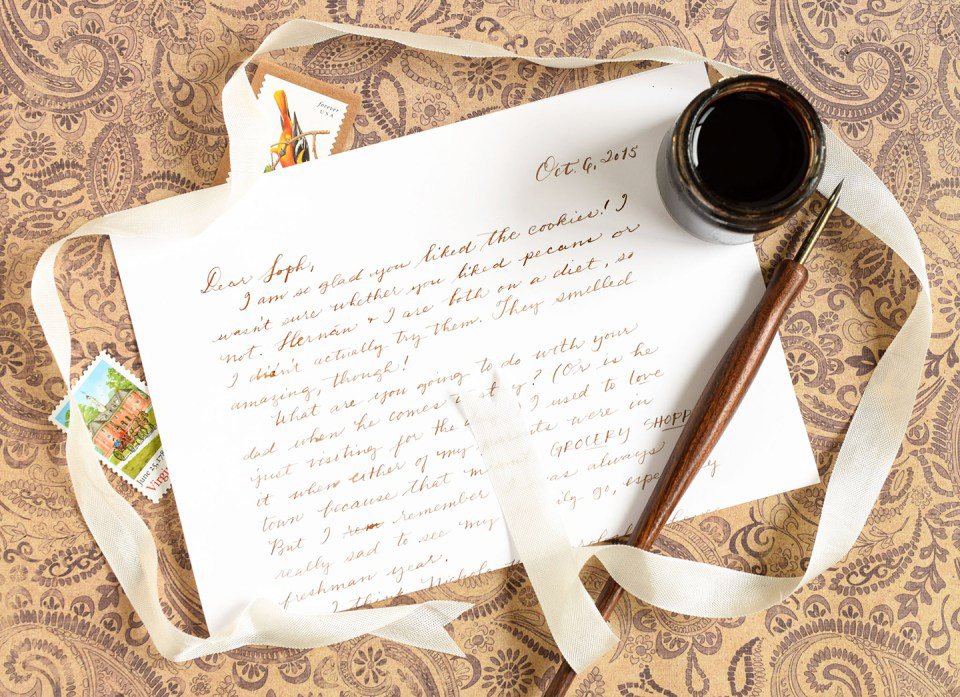 forever
USA
Oct. 6, 2015
Dear Soph,
I am so glad you liked the cookies! I
wasn't sure whether you liked pecans or
not. Hernán + I are both on a diet, so
I didn't actually try them. They smelled
amazing, though!
What are you going to do with your
dad when he comes y? (Or is he
just visiting for the I used to love
it when either of my were in
town because that GROCERY SHOPP
But I rem remember as always
really sad to see my ily go, espe y
freshman year.
I think Nichol
June 25, 17
Virgi